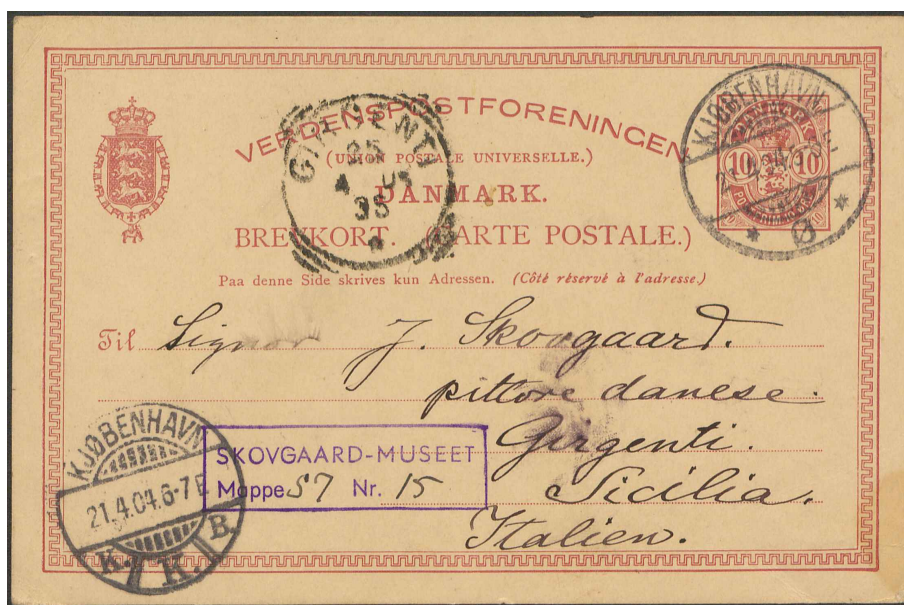 VERDENSPOSTFORENINGEN
(UNION POSTALE UNIVERSELLE.)
DANMARK.
BREVKORT. (CARTE POSTALE.)
Paa denne Side skrives kun Adressen. (Côté réservé à l'adresse.)
GIRGENTI
25
4
KJØBENHAVN
Ø
10 10
Til Signor J. Skovgaard.
pittore danese.
Girgenti.
Sicilia.
Italien.
KJØBENHAVN
21.4.04.6-7E
K. K. B.
SKOVGAARD-MUSEET
Mappe 57 Nr. 15